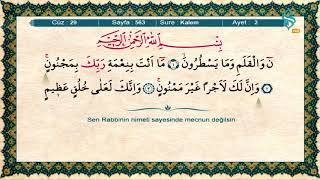 Cüz : 29 Sayfa : 563 Sure : Kalem Ayet : 2
بِسْمِ اللّٰهِ الرَّحْمٰنِ الرَّحِيمِ
نٓ وَالْقَلَمِ وَمَا يَسْطُرُونَۙ مَٓا اَنْتَ بِنِعْمَةِ رَبِّكَ بِمَجْنُونٍۚ
وَاِنَّ لَكَ لَاَجْرًا غَيْرَ مَمْنُونٍۚ وَاِنَّكَ لَعَلٰى خُلُقٍ عَظِيمٍ
Sen Rabbinin nimeti sayesinde mecnun değilsin